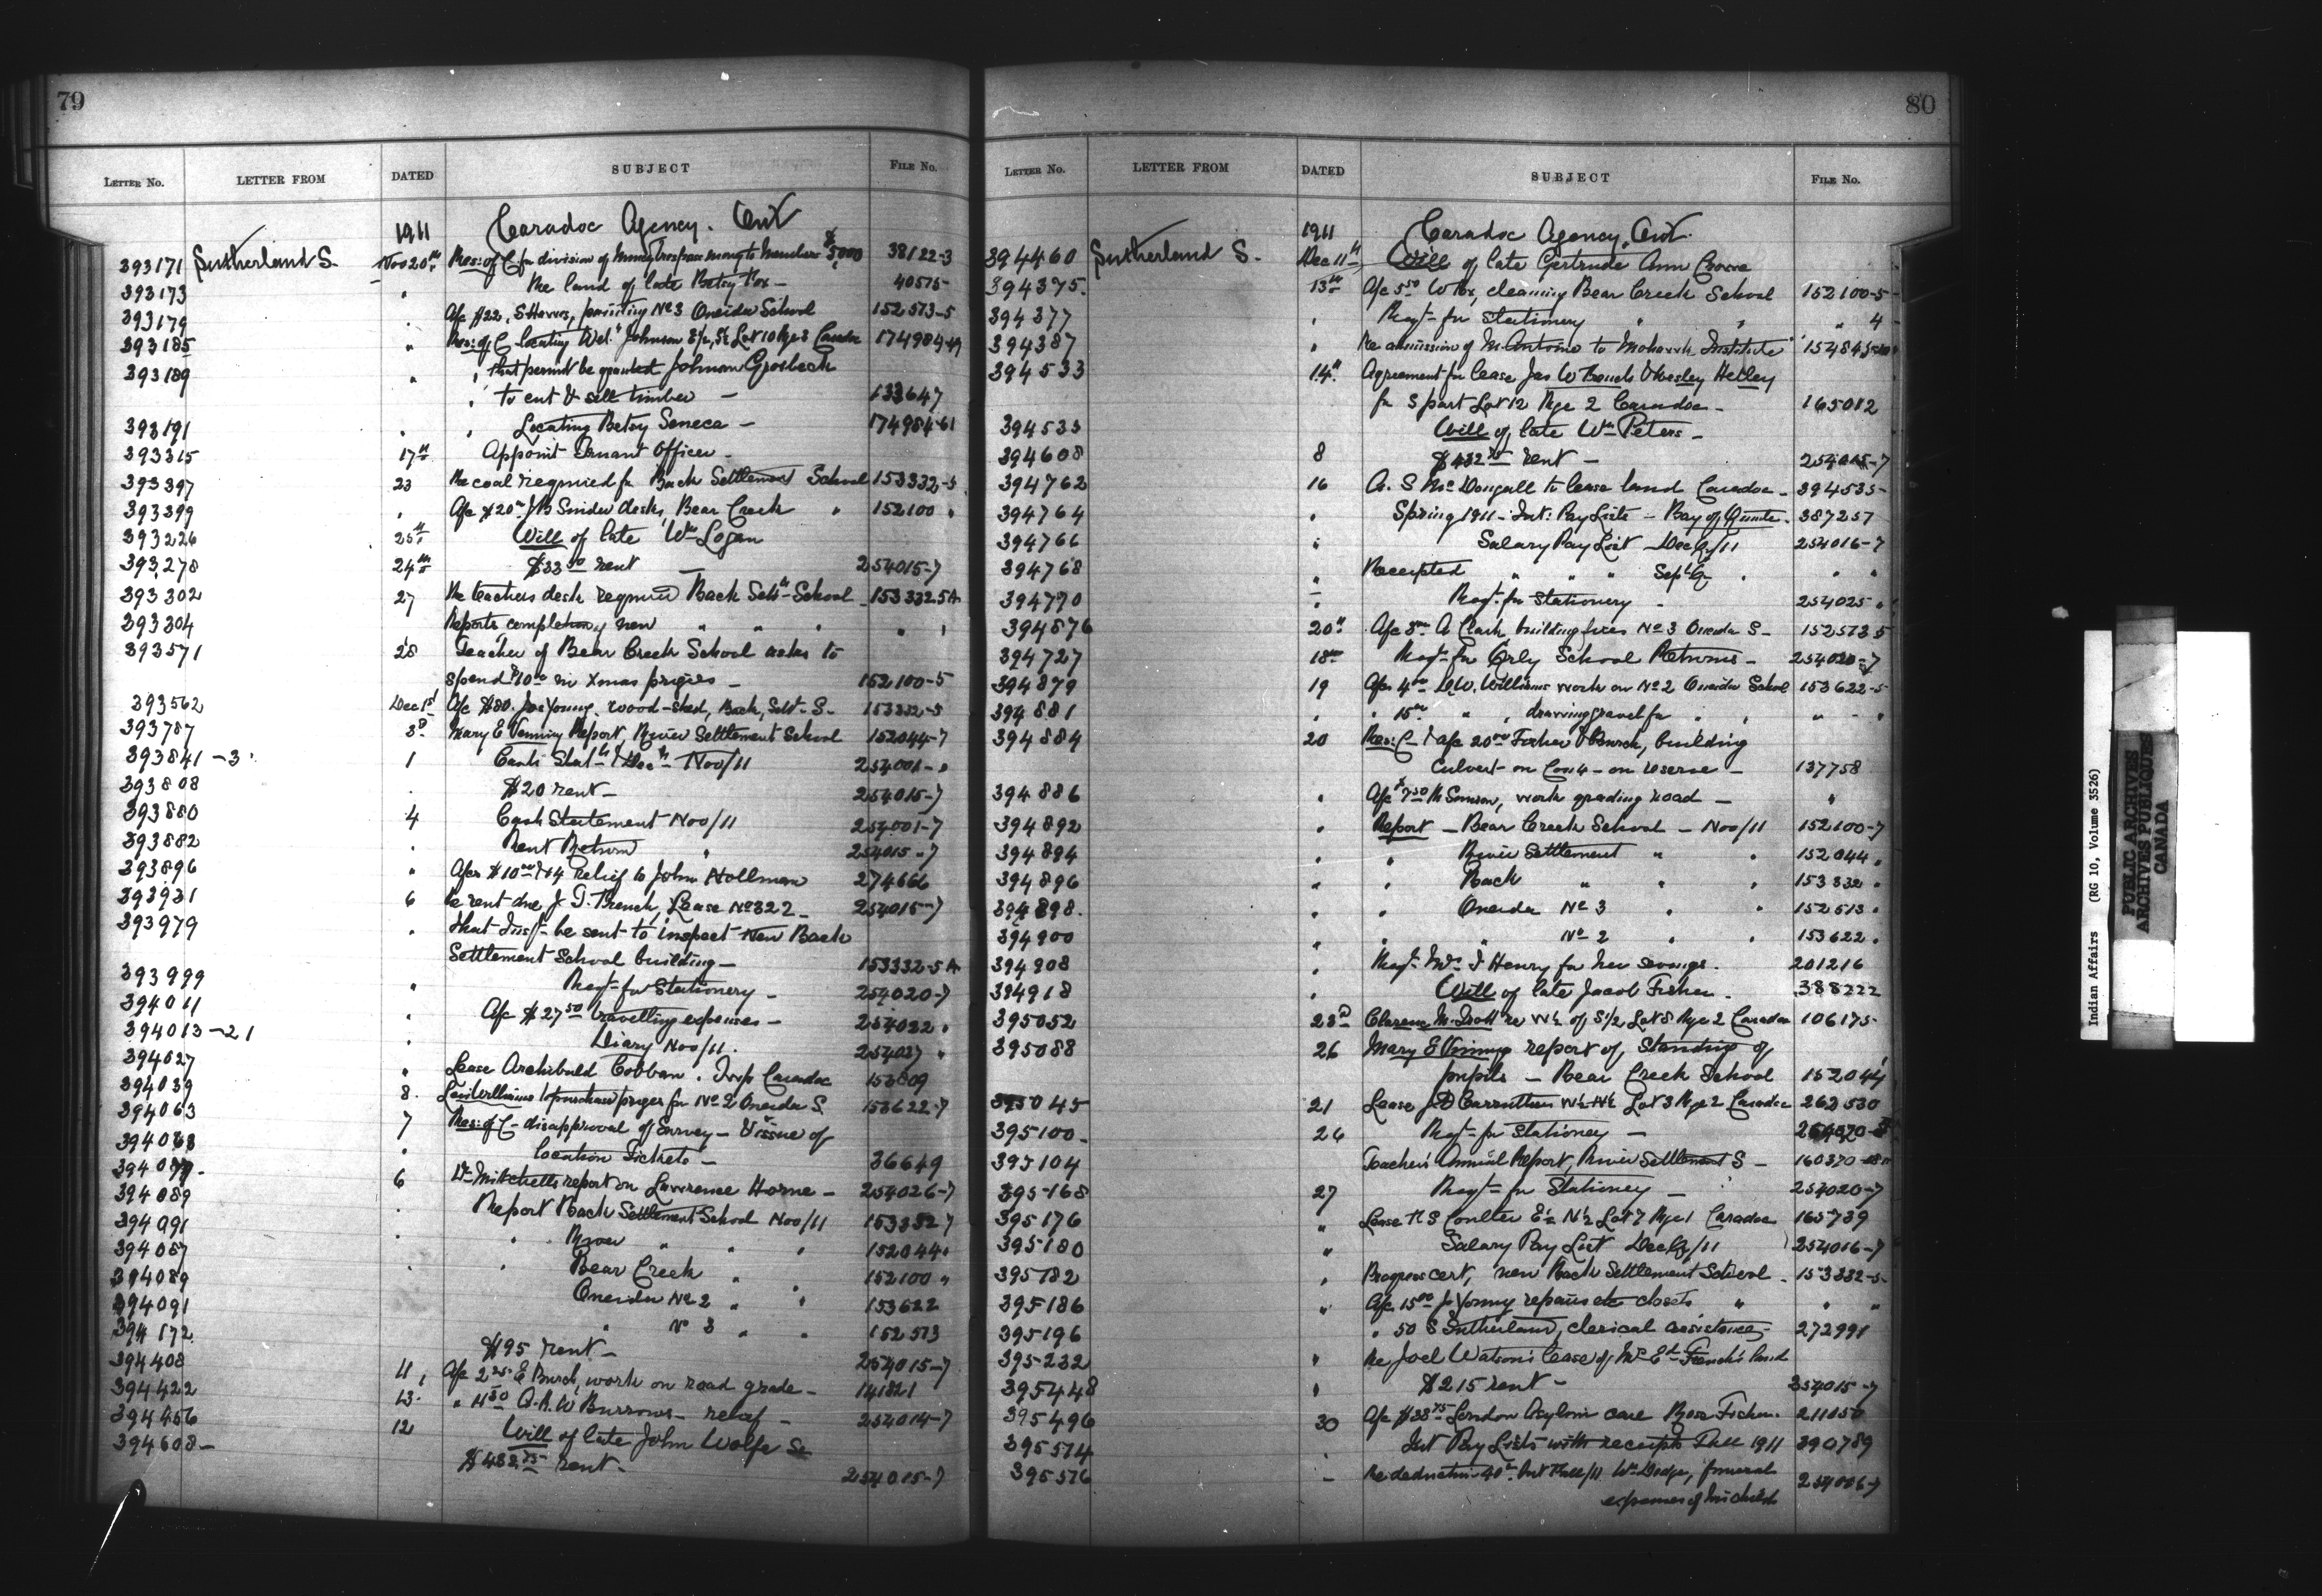 79
LETTER NO. LETTER FROM DATED SUBJECT FILE NO.
1911 Caradoc Agency. Ont
393171 Sutherland S. Nov 20th Res: of C for division of money to Members $5000 38122-3
393173 " Re land of late Betsy Fox - 40575-
393179 " A/c $22. S Havers, painting No 3 Oneida School 152573-5
393185 " Res: of C locating Johnson Lot 10 Rge 3 Caradoc 174984-49
393189 " " that permit be granted Johnson Grosbeck
" to cut & sell timber - 133647
393191 " " Locating Betsy Seneca - 174984-61
393315 17th Appoint Truant Officer -
393397 23 Re coal required for Back Settlement School 153332-5
393399 " A/c $20 J B Snider desks, Bear Creek " 152100 "
393226 25th Will of late Wm Logan
393278 24th $33.50 rent - 254015-7
393302 27 Re teachers desk required Back Settt School 153332 5A
393304 Reports completion of new " " " " "
393571 28 Teacher of Bear Creek School asks to
spend $10 in Xmas prizes - 152100-5
393562 Dec 1st A/c $80. Jos Young, wood-shed, Back, Sett. S. 153332-5
393787 3d Mary E Venning Report, River Settlement School 152044-7
393841-3 1 Cash Statt & Nov/11 254001-"
393808 " $20 rent - 254015-7
393880 4 Cash Statement Nov/11 254001-7
393882 " Rent Return " 254015-7
393896 " A/cs $10 & 4 relief to John Hollman 274666
393931 6 Re rent due J T. French, Lease No 322 - 254015-7
393979 " that Inspt be sent to inspect new Back
Settlement School building - 153332-5 A
393999 " Reqt for Stationery - 254020-7
394011 " A/c $27.50 travelling expenses - 254022 "
394013-21 " Diary Nov/11. 254027 "
394027 " Lease Archibald Cobban. Twp Caradoc 153809
394039 8. Levi Williams to purchase prizes for No 2 Oneida S. 153622-7
394063 7 Res: of C - disapproval of Survey - & issue of
394068 " Location Tickets - 36649
394077- 6 Dr Mitchells report on Lawrence Horne - 254026-7
394089 " Report Back Settlement School Nov/11 153332 7
394091 " " River " " " 152044 "
394087 " " Bear Creek " 152100 "
394089 Oneida No 2 " " 153622
394091 " No 3 " " 152513
394172 $195 rent - 254015-7
394408 11, A/c 2.25 E Burch, work on road grade - 141821
394422 13. " 11.50 Q.A.W Burrows - relief - 254014-7
394456 12 Will of late John Wolfe Sr
394608- $432.75 rent. 254015-7
80
LETTER NO. LETTER FROM DATED SUBJECT FILE NO.
1911 Caradoc Agency, Ont.
394460 Sutherland S. Dec 11th Will of late Gertrude Ann Crowe
394375. 13th A/c 5.50 W Fox, cleaning Bear Creek School 152100-5
394377 " Reqt for Stationery " " " 4
394387 " Re admission of M. Antoine to Mohawk Institute 154845
394533 14th Agreement for lease Jas W Bouch & Wesley Hetley
for S part Lot 12 Rge 2 Caradoc - 165012
394533 Will of late Wm Peters -
394608 8 $432.75 rent - 254015-7
394762 16 A. S McDougall to lease land Caradoc - 394535-
394764 " Spring 1911 - Int: Pay Lists - Bay of Quinte. 387257
394766 " Salary Pay List - Dec Q/11 254016-7
394768 " Receipted " " " Sept Q " " "
394770 " Reqt. for Stationery - 254025 "
394876 20th A/c 8 A Clark building fires No 3 Oneida S - 152513 5
394727 18th Reqt for Qrly School Returns - 254020-7
394879 19 A/cs 4 D.W. Williams work on No 2 Oneida School 153622-5
394881 " " 15 " " , drawing gravel for " " " - "
394884 20 Res: C - & a/c 20.00 Fisher & Burch, building
culvert on Con 4 - on reserve - 137758
394886 " A/c $7.50 M Simson, work grading road - "
394892 " Report - Bear Creek School - Nov/11 152100-7
394894 " " River Settlement " " 152044 "
394896 " " Back " " " 153332 "
394898. " " Oneida No 3 " " 152513 "
394900 " " " No 2 " " 153622 "
394908 " Reqt Mrs I Henry for her savings. 201216
394918 " Will of late Jacob Fisher. 388222
395052 23d Clarence M. Trott re W½ of S½ Lot 8 Rge 2 Caradoc 106175-
395088 26 Mary E Vinings report of Standing of
pupils - Bear Creek School 152044
395045 21 Lease J D Carruthers W½ N½ Lot 3 Rge 2 Caradoc 262530
395100- 26 Reqt for Stationery -
395104 Teachers Annual Report, River Settlement S - 160370
395168 27 Reqt for Stationery - 254020-7
395176 " Lease R S Coulter E½ N½ Lot 7 Rge 1 Caradoc 165739
395180 " Salary Pay List Dec Q/11 254016-7
395182 " Progress cert, new Back Settlement School - 153332-5-
395186 " A/c 15.00 Jo Young repairs etc closets " " "
395196 " 50 S Sutherland, clerical assistance - 272991
395232 " Re Joel Watson's lease of Mrs Ed French's land
395448 " $215 rent - 254015-7
395496 30 A/c $38.75 London Asylum care Rose Fisher. 211050
395574 " Int Pay Lists with receipts Fall 1911 390789
395576 - Re deduction 40 Int Fall/11 Wm Dodge, funeral 254006-7
expenses of his child
Indian Affairs (RG 10, Volume 3526)
PUBLIC ARCHIVES
ARCHIVES PUBLIQUES
CANADA